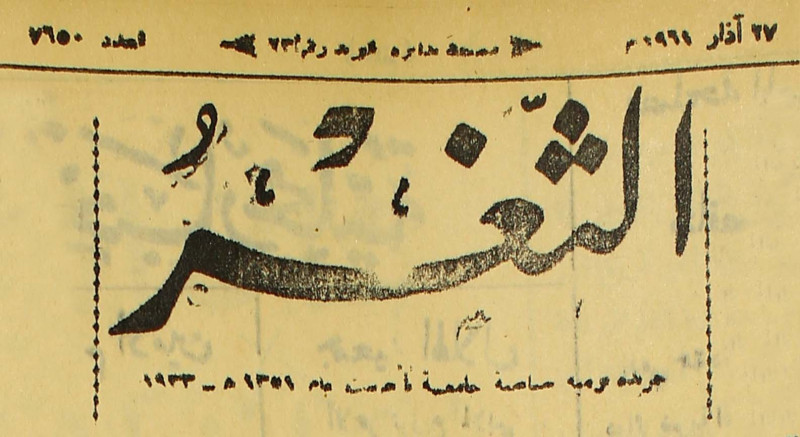 ٢٧ آذار ١٩٦١ م صفحة دائرة بريد رقم ٢٣ العدد ٧٦٥٠
الثغر
جريدة يومية سياسية جامعية تأسست عام ١٣٥١ ه – ١٩٣٣